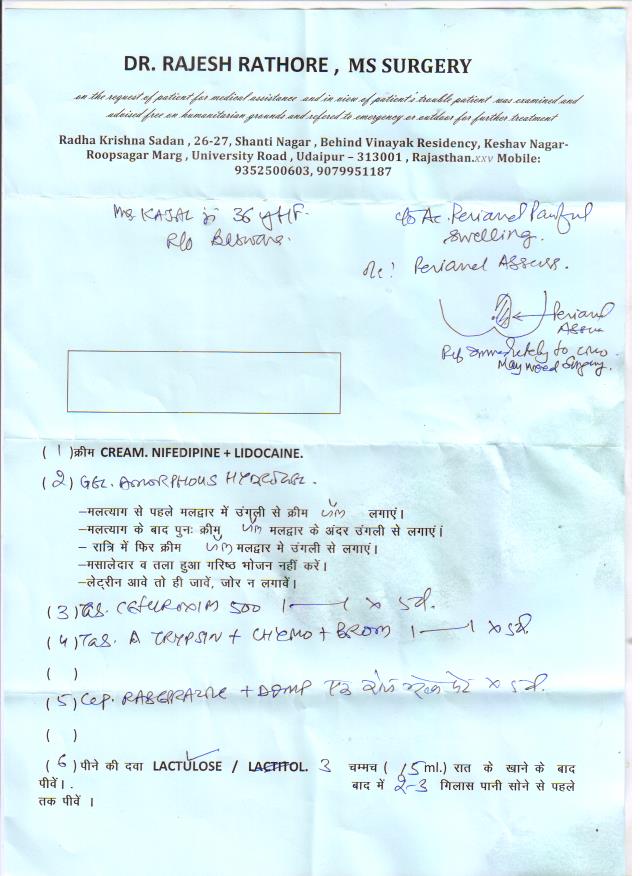 DR. RAJESH RATHORE , MS SURGERY
on the request of patient for medical assistance and in view of patient's trouble patient was examined and
advised free on humanitarian grounds and refered to emergency or outdoor for further treatment
Radha Krishna Sadan , 26-27, Shanti Nagar , Behind Vinayak Residency, Keshav Nagar-
Roopsagar Marg , University Road , Udaipur – 313001 , Rajasthan.xxv Mobile:
9352500603, 9079951187
KAJAL 36 y
R/o
c/o Ac. Perianal Painful
Swelling.
Perianal Abscess.
Perianal
Ref immediately to
May need Surgery.
( 1 )क्रीम CREAM. NIFEDIPINE + LIDOCAINE.
(2) GEL. AMORPHOUS HYDROGEL.
–मलत्याग से पहले मलद्वार में उंगली से क्रीम लगाएं।
–मलत्याग के बाद पुनः क्रीम मलद्वार के अंदर उंगली से लगाएं।
– रात्रि में फिर क्रीम मलद्वार मे उंगली से लगाएं।
–मसालेदार व तला हुआ गरिष्ठ भोजन नहीं करें।
–लेट्रीन आवे तो ही जावें, जोर न लगावें।
(3) Tab. CEFUROXIM 500 1——1 x 5d.
(4) Tab. A TRYPSIN + CHYMO + BROM 1——1 x 5d.
( )
(5) Cap. RABEPRAZOLE + DOMP x 5d.
( )
(6) पीने की दवा LACTULOSE / LACTITOL. 3 चम्मच ( 15 ml.) रात के खाने के बाद
पीवें। . बाद में 2-3 गिलास पानी सोने से पहले
तक पीवें ।